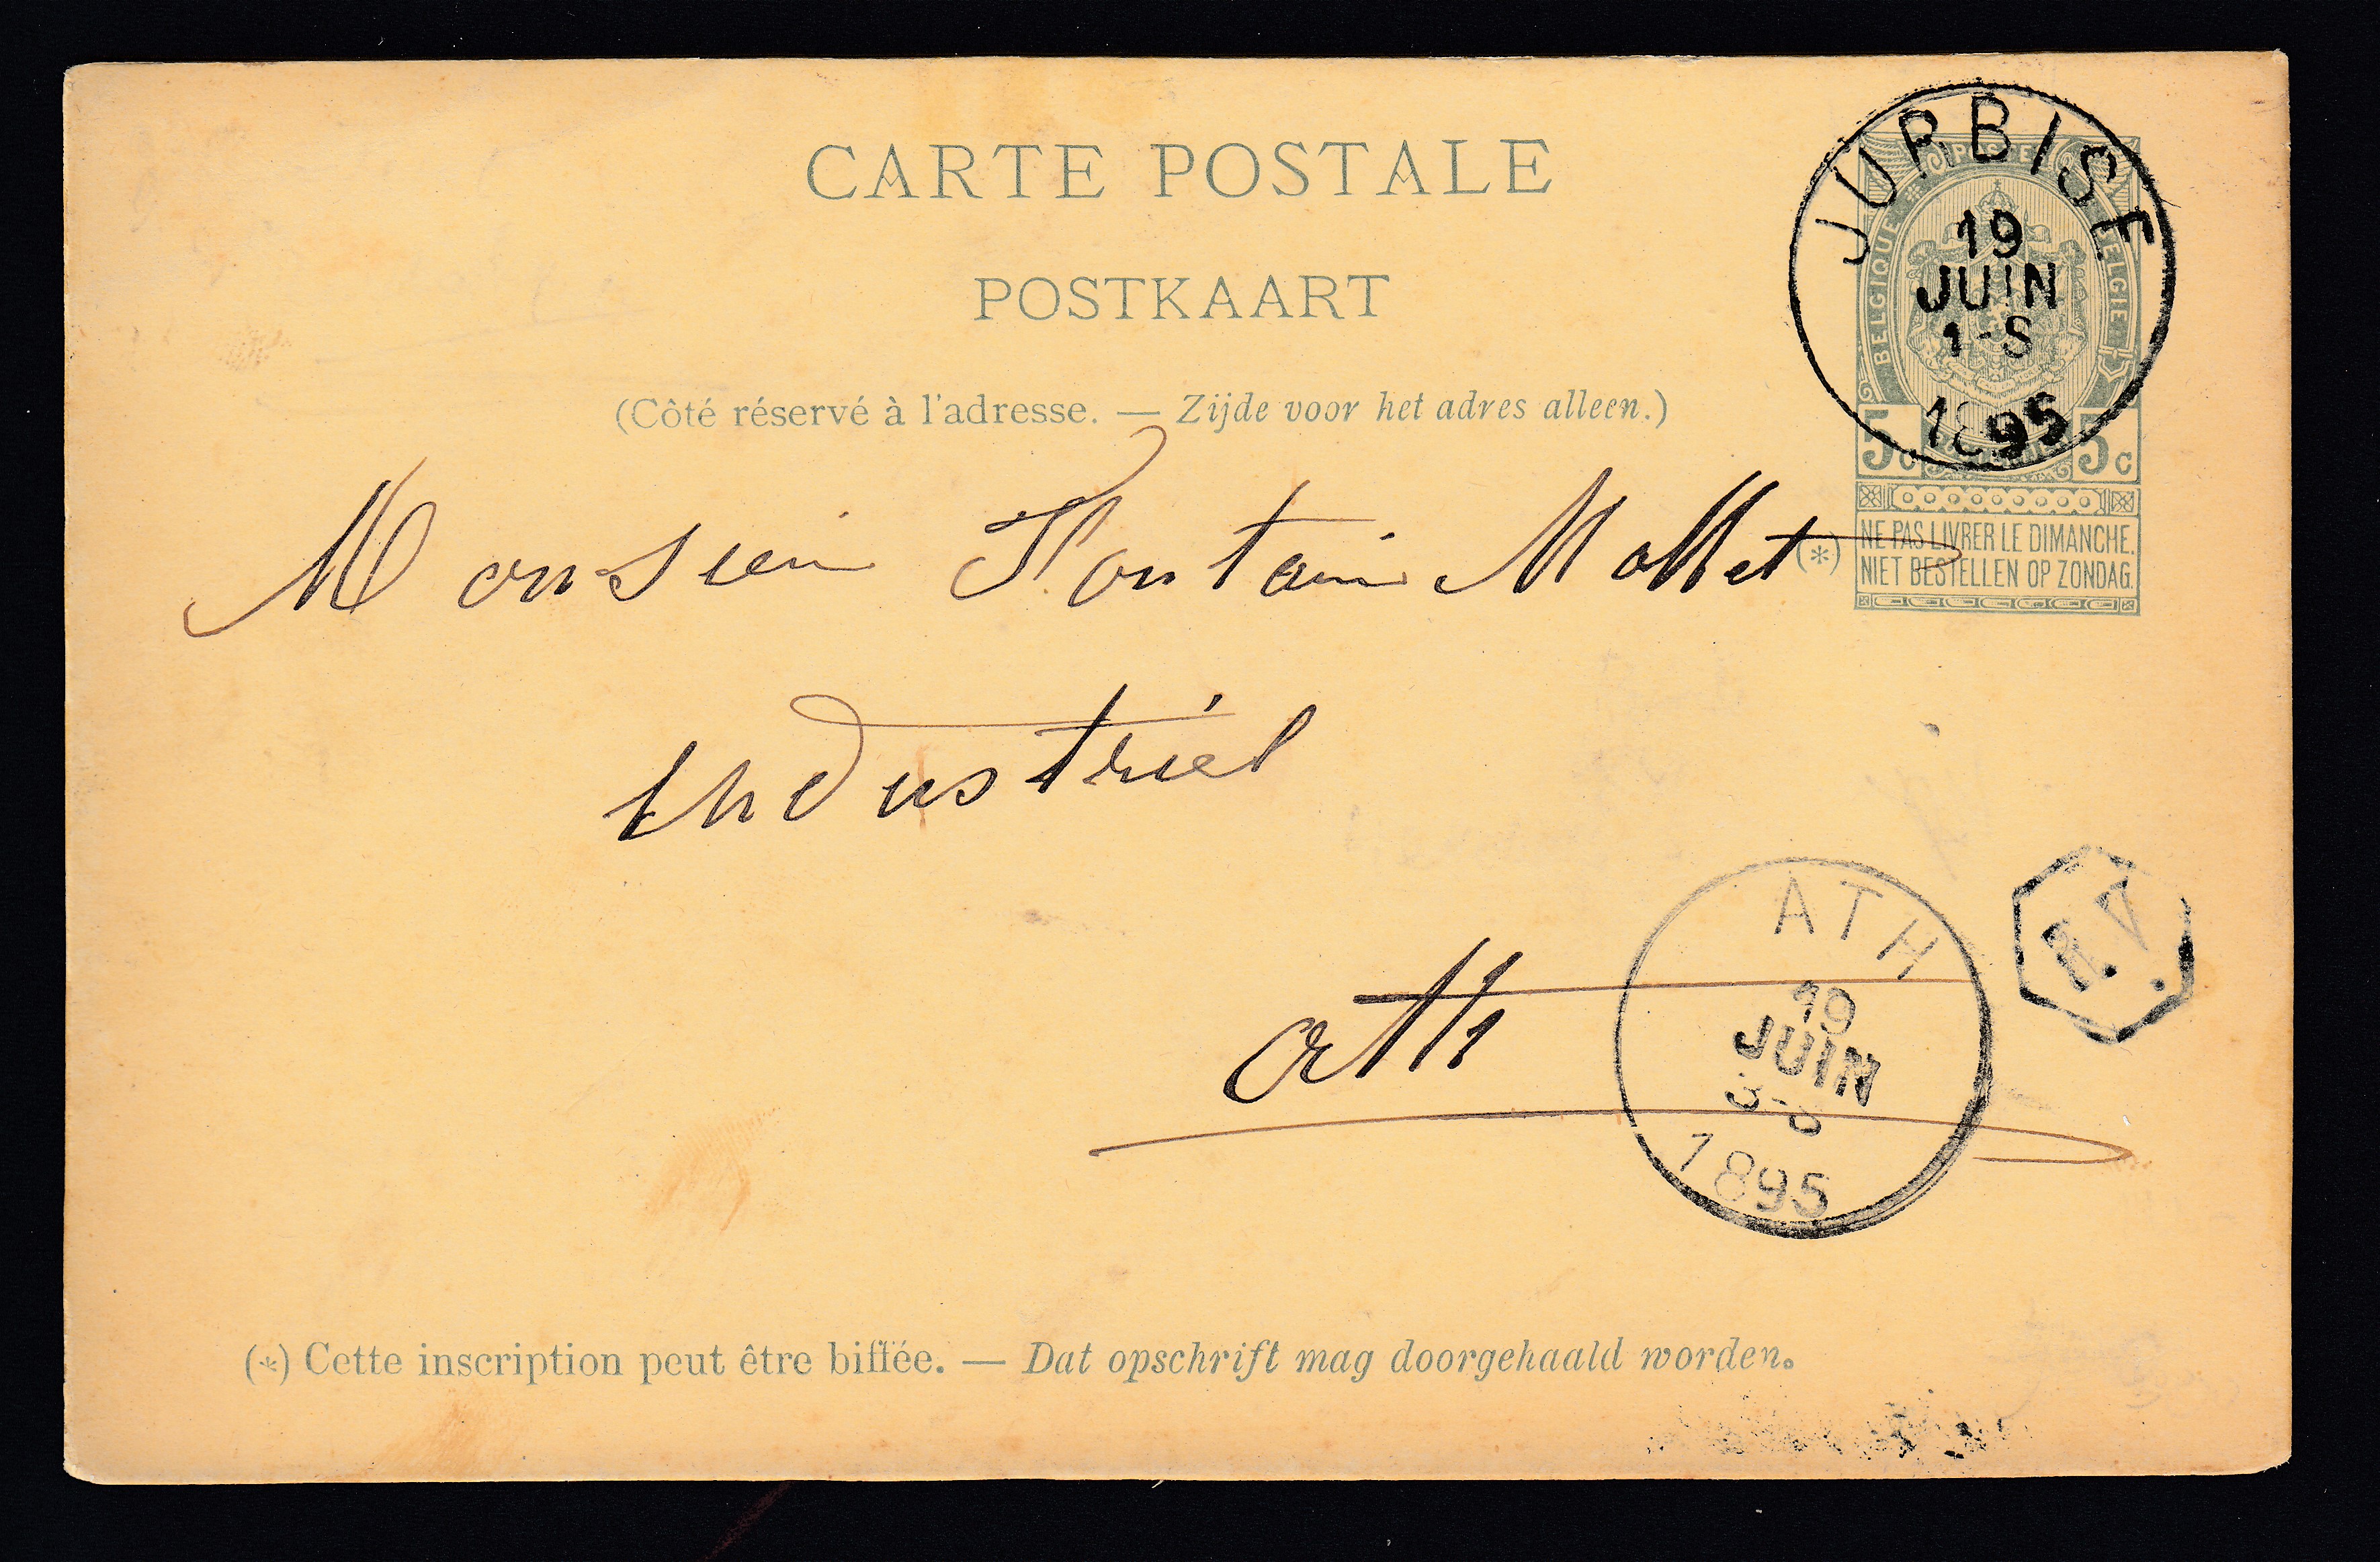 CARTE POSTALE
POSTKAART
(Côté réservé à l'adresse. — Zijde voor het adres alleen.)
JURBISE
19
JUIN
1-S
1895
POSTES
BELGIQUE
BELGIE
5c 5c
(*)
NE PAS LIVRER LE DIMANCHE.
NIET BESTELLEN OP ZONDAG.
Monsieur Fontaine Mollet
Industriel
ath
ATH
19
JUIN
3-S
1895
(*) Cette inscription peut être biffée. — Dat opschrift mag doorgehaald worden.